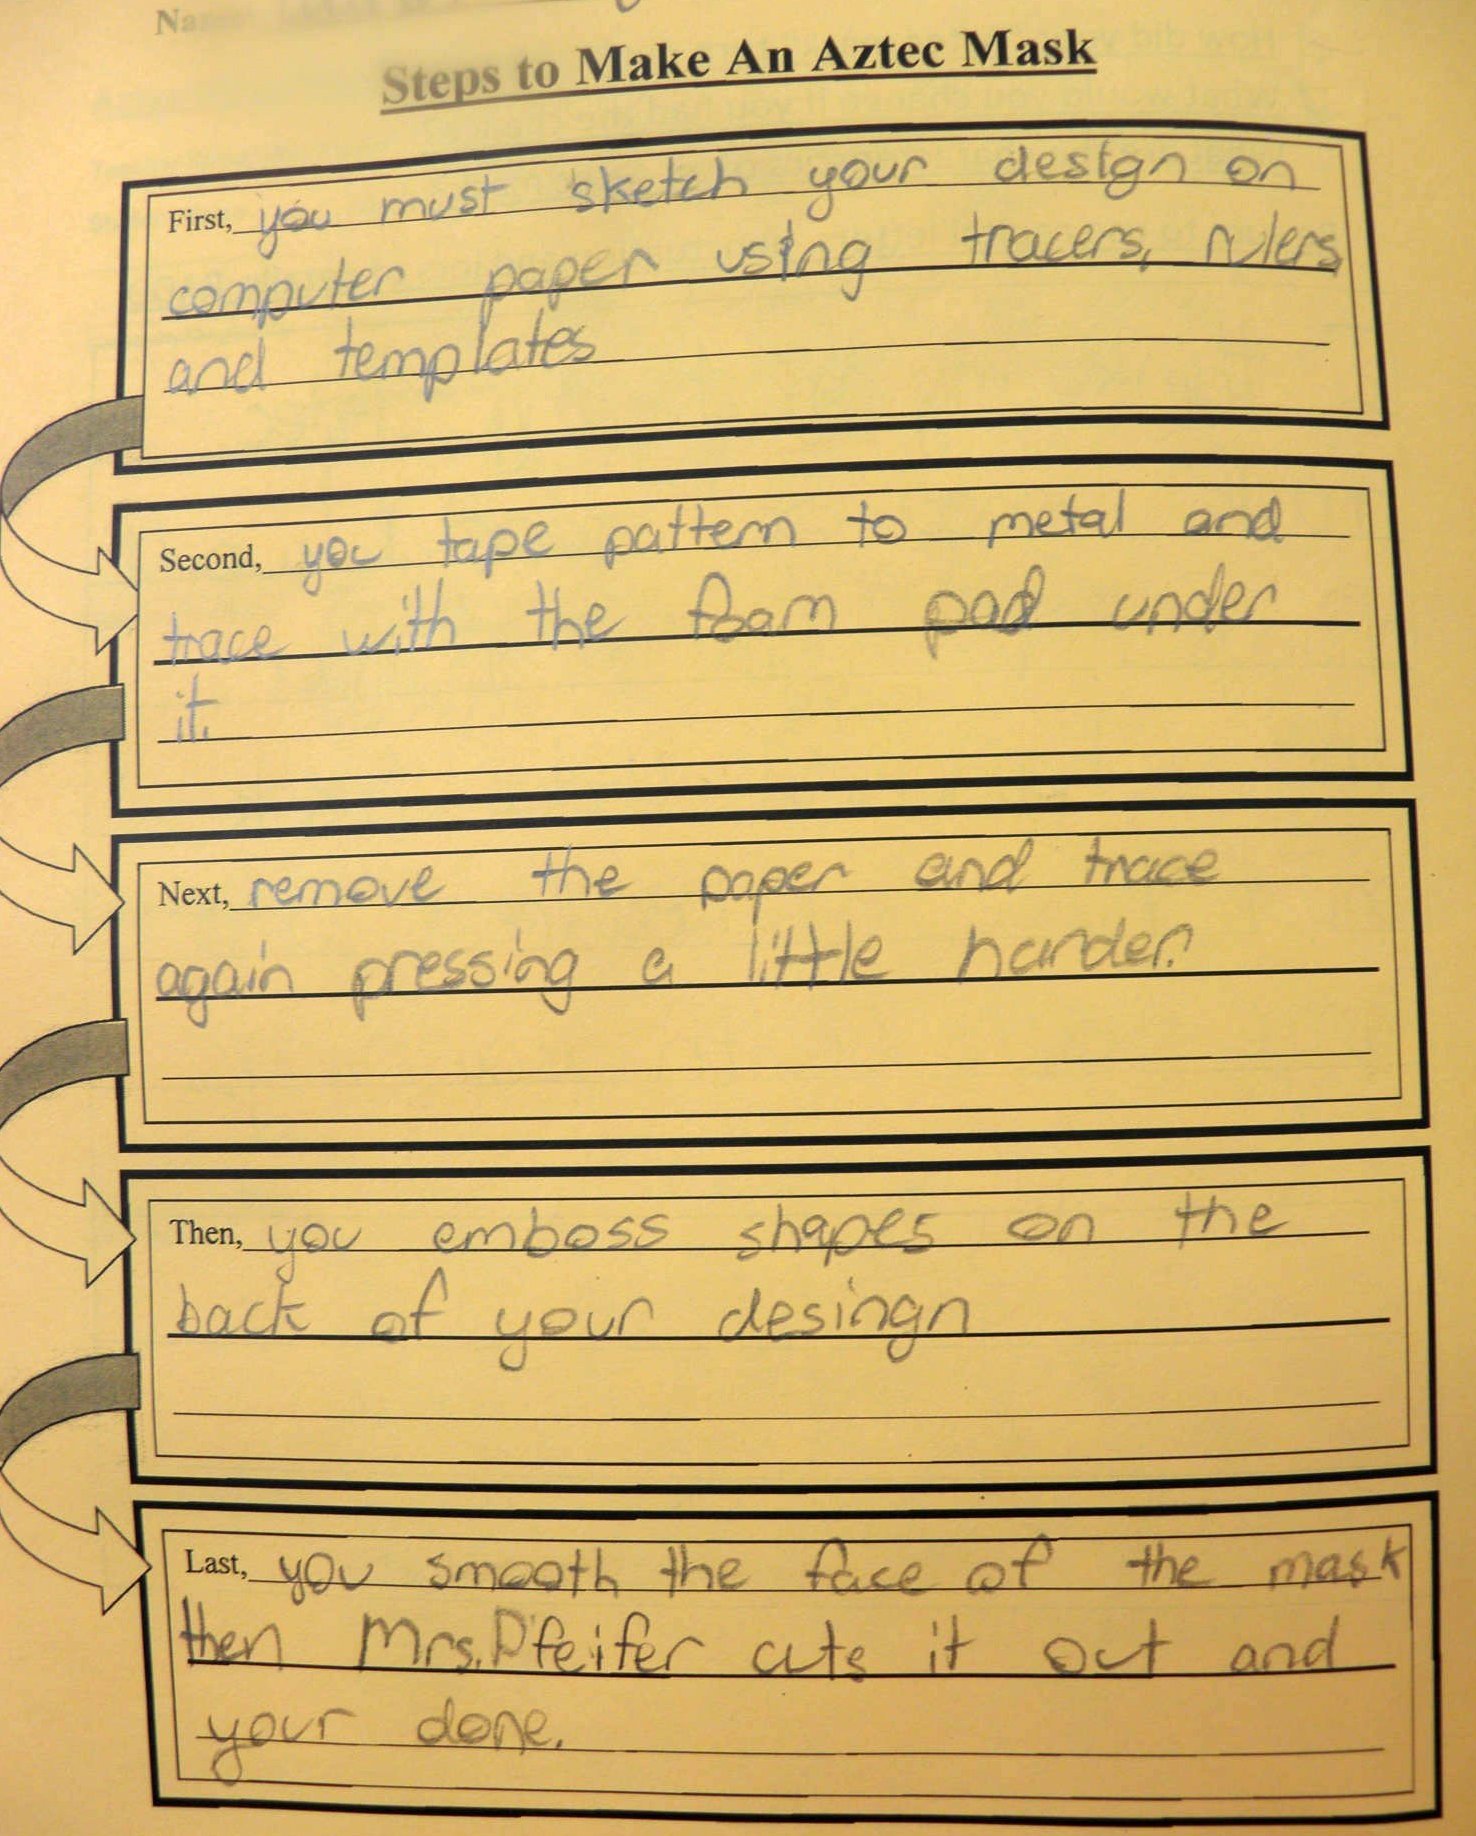 Steps to Make An Aztec Mask
First, you must sketch your design on
computer paper using tracers, rulers
and templates
Second, you tape pattern to metal and
trace with the foam pad under
it.
Next, remove the paper and trace
again pressing a little harder.
Then, you emboss shapes on the
back of your desingn
Last, you smooth the face of the mask
then Mrs. Pfeifer cuts it out and
your done.